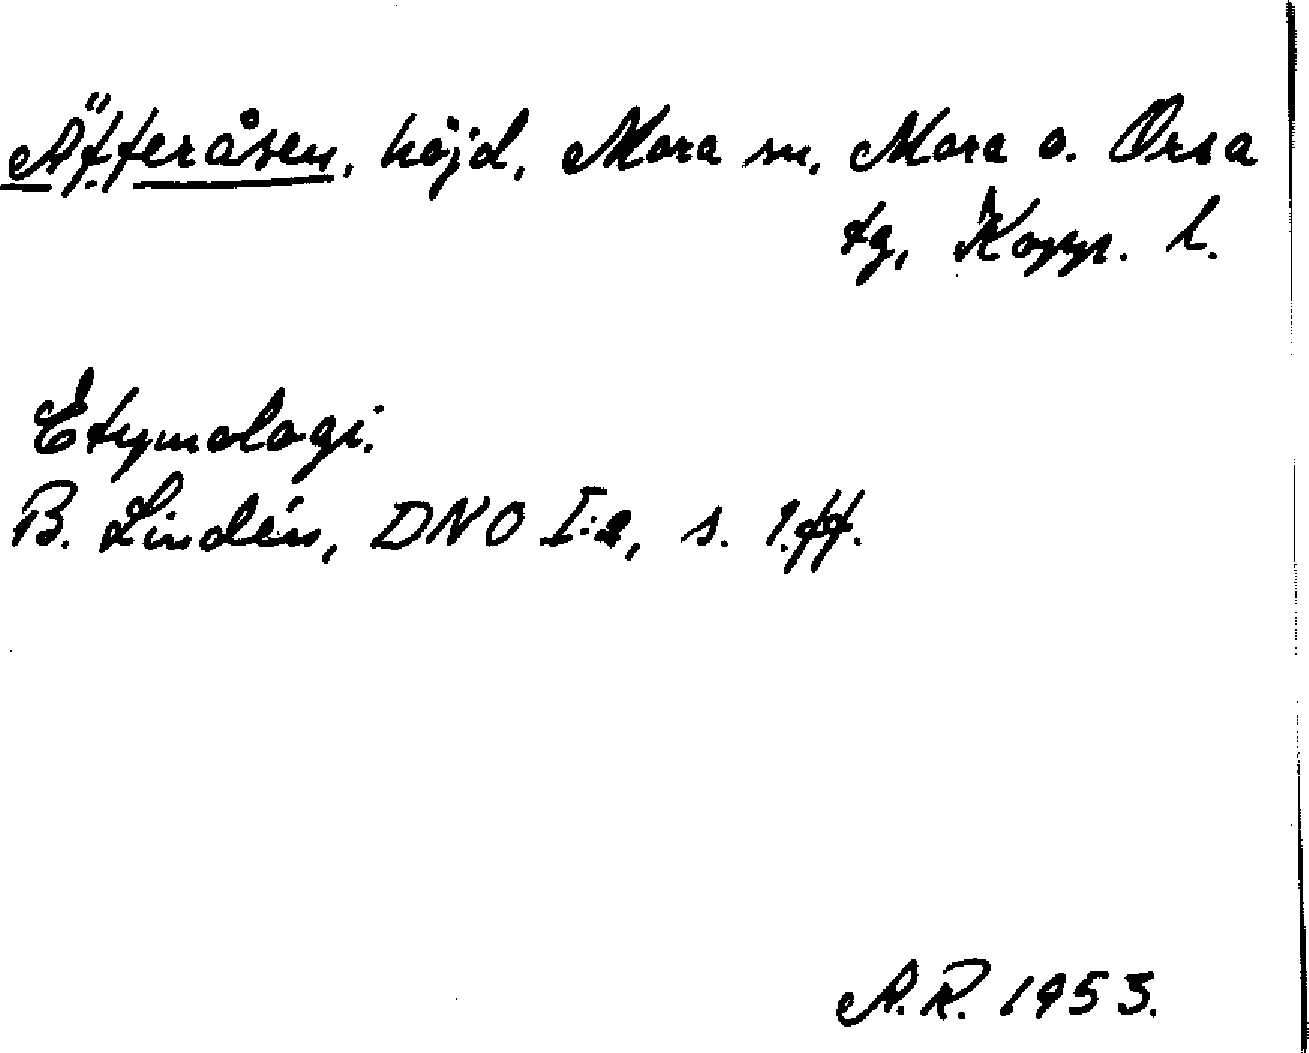 Äfteråsen, höjd, Mora sn, Mora o. Orsa
tg, Kopp. l.
Etymologi.
B. Lindén, DNO I:2, s. 1 ff.
A.R. 1953.